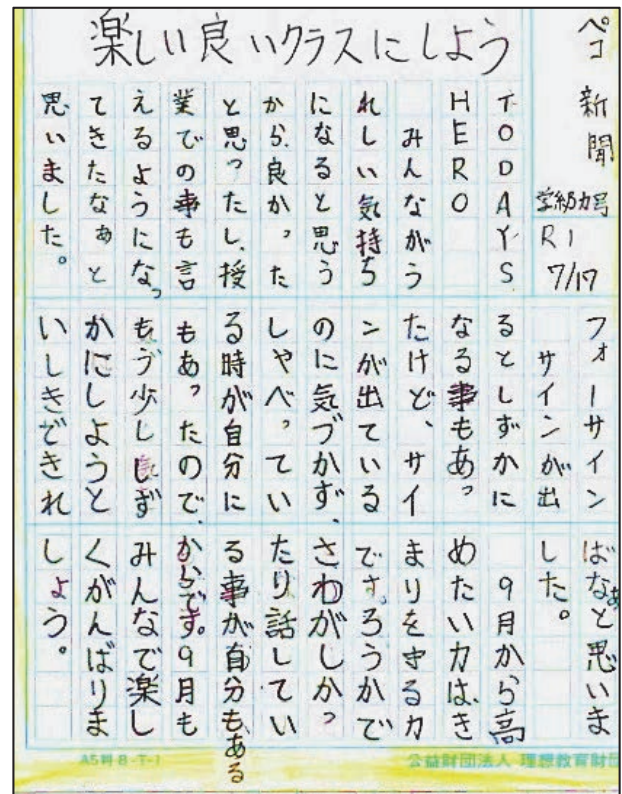 ペコ新聞
学級力号
R1
7/17
楽しい良いクラスにしよう
TODAY'S
HERO
みんながう
れしい気持ち
になると思う
から、良かった
と思ったし、授
業での事も言
えるようになっ
てきたなぁと
思いました。
フォーサイン
サインが出
るとしずかに
なる事もあっ
たけど、サイ
ンが出ている
のに気づかず、
しゃべってい
る時が自分に
もあったので、
もう少ししず
かにしようと
いしきできれ
ばなぁと思いま
した。
9月から高
めたい力は、き
まりを守る力
です。ろうかで
さわがしかっ
たり話してい
る事が自分もある
からです。9月も
みんなで楽し
くがんばりま
しょう。
A5判-B-T-1
公益財団法人 理想教育財団